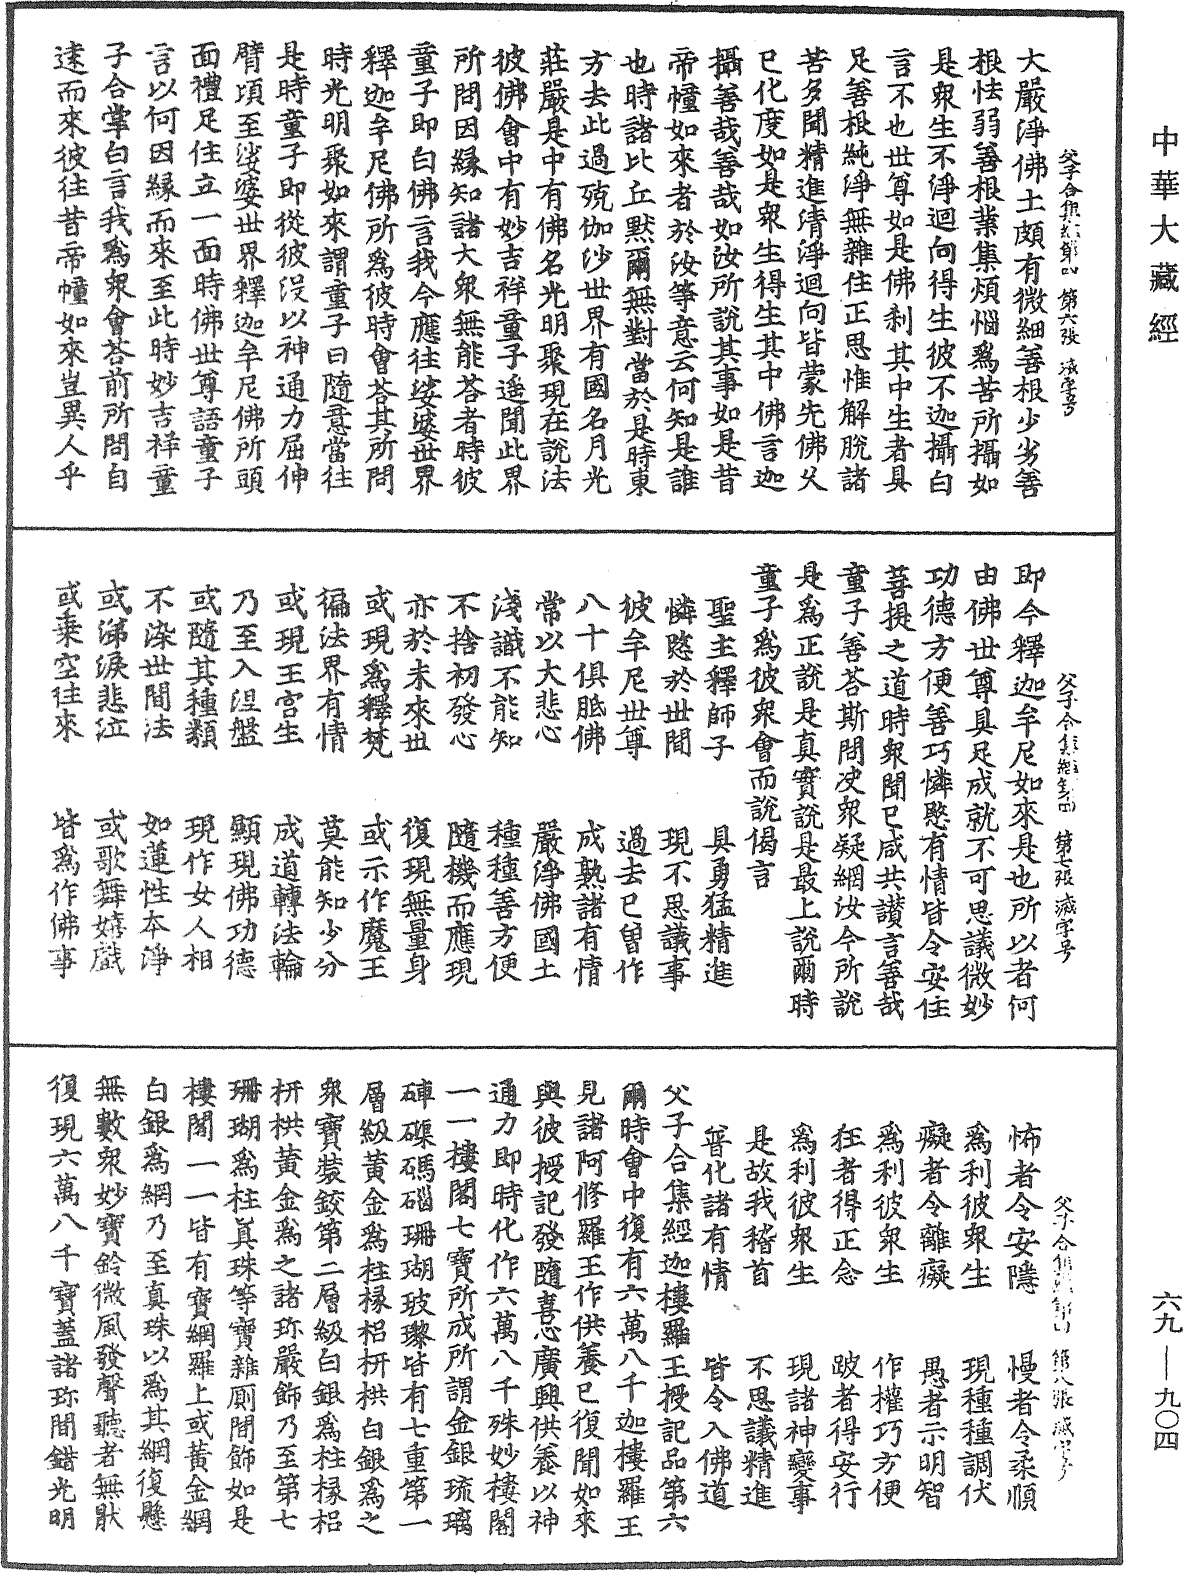 中華大藏經
父子合集經第四 第六張 溫字号
大嚴淨佛土頗有微細善根少劣善
根怯弱善根業集煩惱爲苦所攝如
是衆生不淨迴向得生彼不迦攝白
言不也世尊如是佛刹其中生者具
足善根純淨無雜住正思惟解脫諸
苦多聞精進清淨迴向皆蒙先佛久
已化度如是衆生得生其中佛言迦
攝善哉善哉如汝所說其事如是昔
帝幢如來者於汝等意云何知是誰
也時諸比丘默爾無對當於是時東
方去此過殑伽沙世界有國名月光
莊嚴是中有佛名光明聚現在說法
彼佛會中有妙吉祥童子遙聞此界
所問因緣知諸大衆無能荅者時彼
童子即白佛言我今應往娑婆世界
釋迦牟尼佛所爲彼時會荅其所問
時光明聚如來謂童子曰隨意當往
是時童子即從彼沒以神通力屈伸
臂頃至娑婆世界釋迦牟尼佛所頭
面禮足住立一面時佛世尊語童子
言以何因緣而來至此時妙吉祥童
子合掌白言我爲衆會荅前所問自
遠而來彼往昔帝幢如來豈異人乎
父子合集經第四 第七張 溫字号
即今釋迦牟尼如來是也所以者何
由佛世尊具足成就不可思議微妙
功德方便善巧憐愍有情皆令安住
菩提之道時衆聞已咸共讚言善哉
童子善荅斯問決衆疑網汝今所說
是爲正說是真實說是最上說爾時
童子爲彼衆會而說偈言
聖主釋師子 具勇猛精進
憐愍於世間 現不思議事
彼牟尼世尊 過去已曾作
八十俱胝佛 成熟諸有情
常以大悲心 嚴淨佛國土
淺識不能知 種種善方便
不捨初發心 隨機而應現
亦於未來世 復現無量身
或現爲釋梵 或示作魔王
徧法界有情 莫能知少分
或現王宮生 成道轉法輪
乃至入涅盤 顯現佛功德
或隨其種類 現作女人相
不染世間法 如蓮性本淨
或涕淚悲泣 或歌舞嬉戲
或乗空往來 皆爲作佛事
父子合集經第四 第八張 溫字号
怖者令安隱 慢者令柔順
爲利彼衆生 現種種調伏
癡者令離癡 愚者示明智
爲利彼衆生 作權巧方便
狂者得正念 跛者得安行
爲利彼衆生 現諸神變事
是故我稽首 不思議精進
普化諸有情 皆令入佛道
父子合集經迦樓羅王授記品第六
爾時會中復有六萬八千迦樓羅王
見諸阿修羅王作供養已復聞如來
與彼授記發隨喜心廣興供養以神
通力即時化作六萬八千殊妙樓閣
一一樓閣七寶所成所謂金銀琉璃
硨磲碼碯珊瑚玻瓈皆有七重第一
層級黃金爲柱椽梠枅栱白銀爲之
衆寶裝鉸第二層級白銀爲柱椽梠
枅栱黃金爲之諸珎嚴飾乃至第七
珊瑚爲柱真珠等寶雜廁間飾如是
樓閣一一皆有寶網羅上或黃金網
白銀爲網乃至真珠以爲其網復懸
無數衆妙寶鈴微風發聲聽者無猒
復現六萬八千寶蓋諸珎間錯光明
六九—九〇四